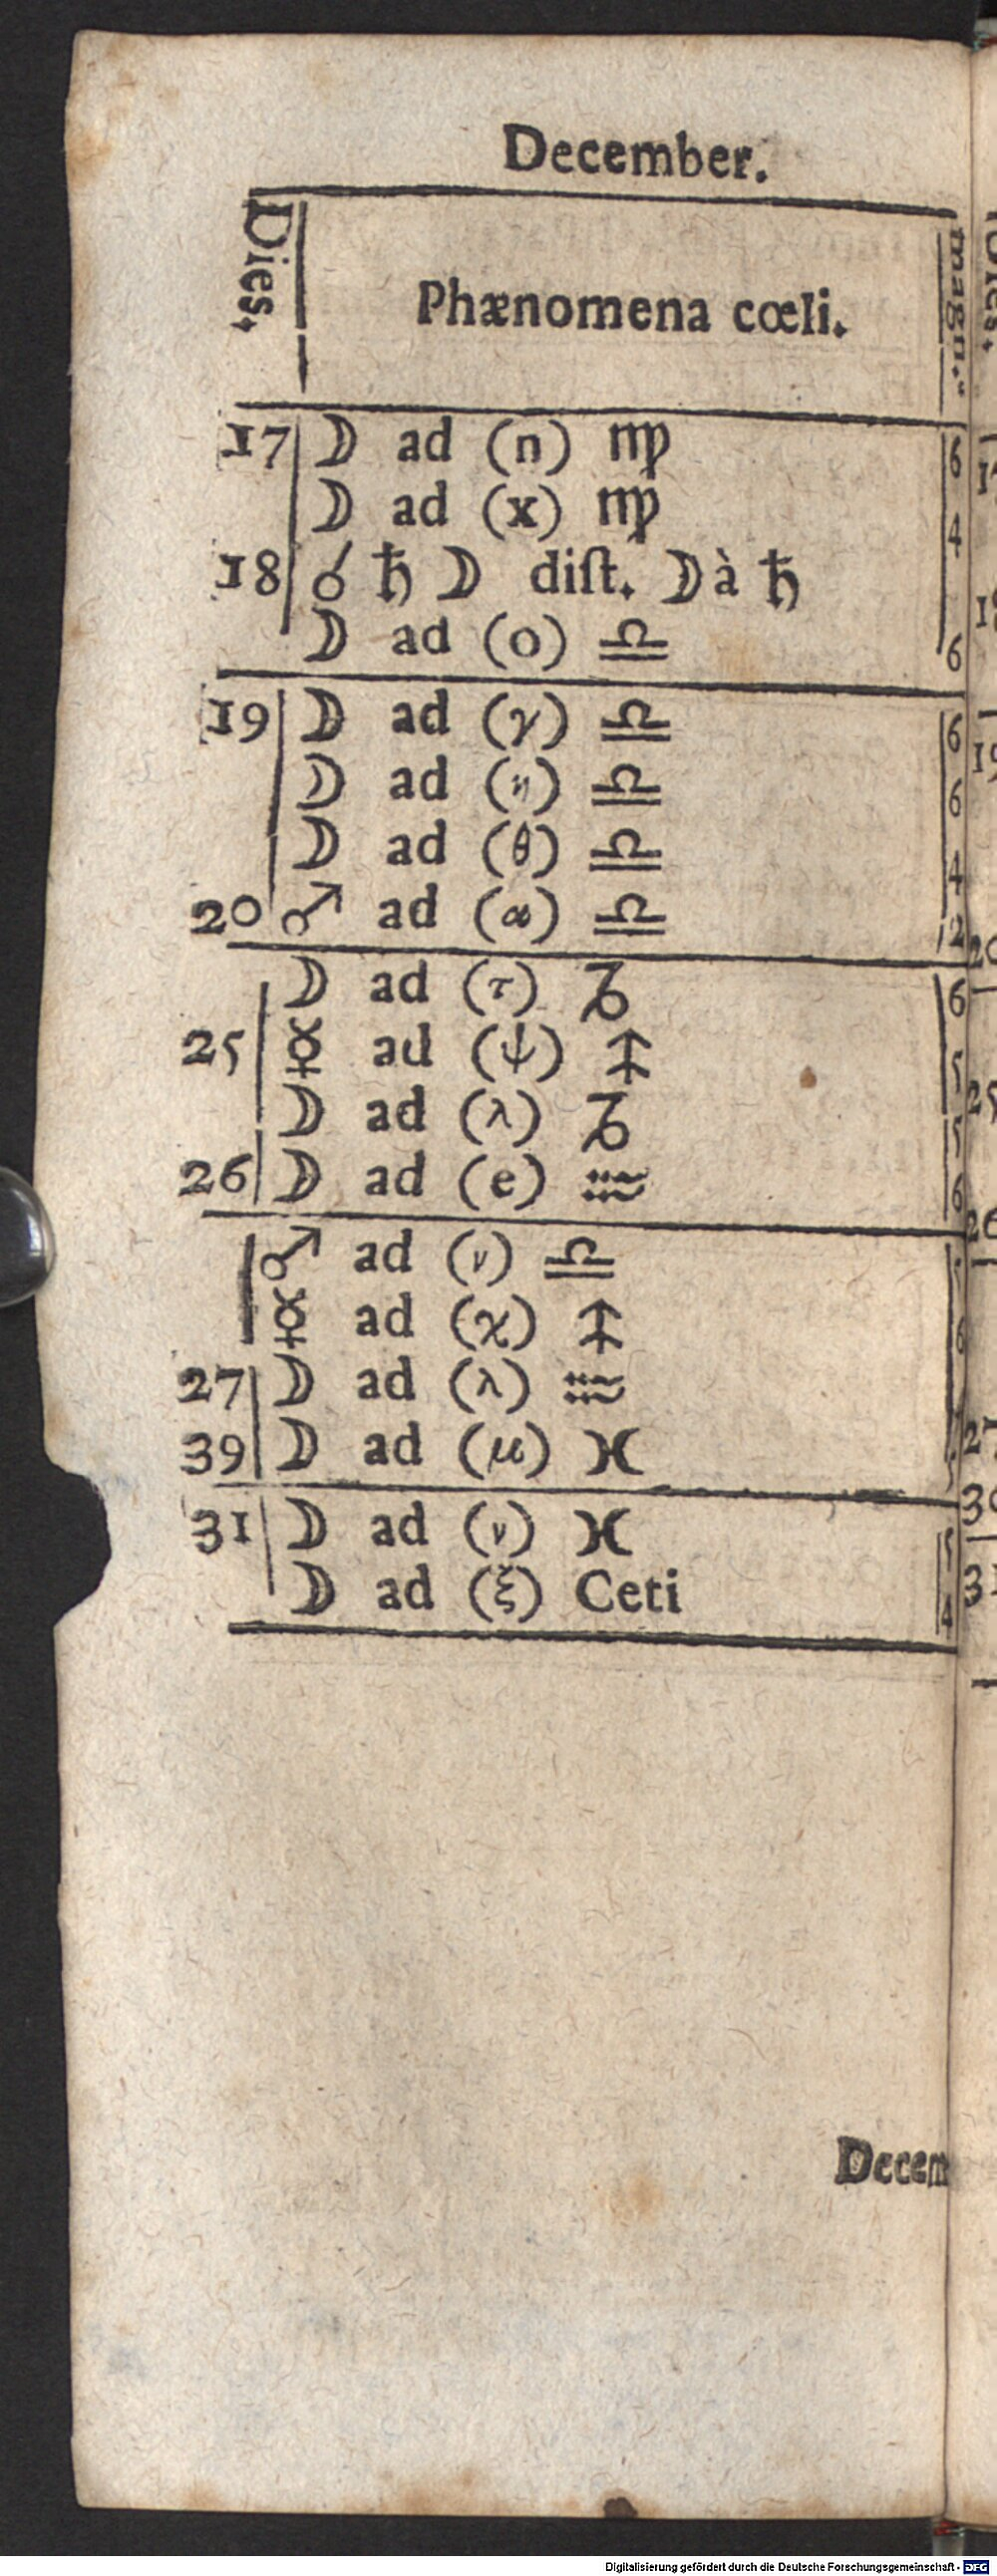 December.
Dies, Phænomena cœli. magn.
17 ☽ ad (n) ♍ 6
☽ ad (x) ♍ 4
18 ☌ ♄ ☽ diſt. ☽ à ♄
☽ ad (o) ♎ 6
19 ☽ ad (γ) ♎ 6
☽ ad (η) ♎ 6
☽ ad (θ) ♎ 4
20 ♂ ad (α) ♎ 2
☽ ad (τ) ♑ 6
25 ☿ ad (ψ) ♐ 5
☽ ad (λ) ♑ 5
26 ☽ ad (e) ♒ 6
♂ ad (ν) ♎
☿ ad (χ) ♐ 6
27 ☽ ad (λ) ♒
39 ☽ ad (μ) ♓ 5
31 ☽ ad (ν) ♓ 5
☽ ad (ξ) Ceti 4
Decem
Digitalisierung gefördert durch die Deutsche Forschungsgemeinschaft - DFG